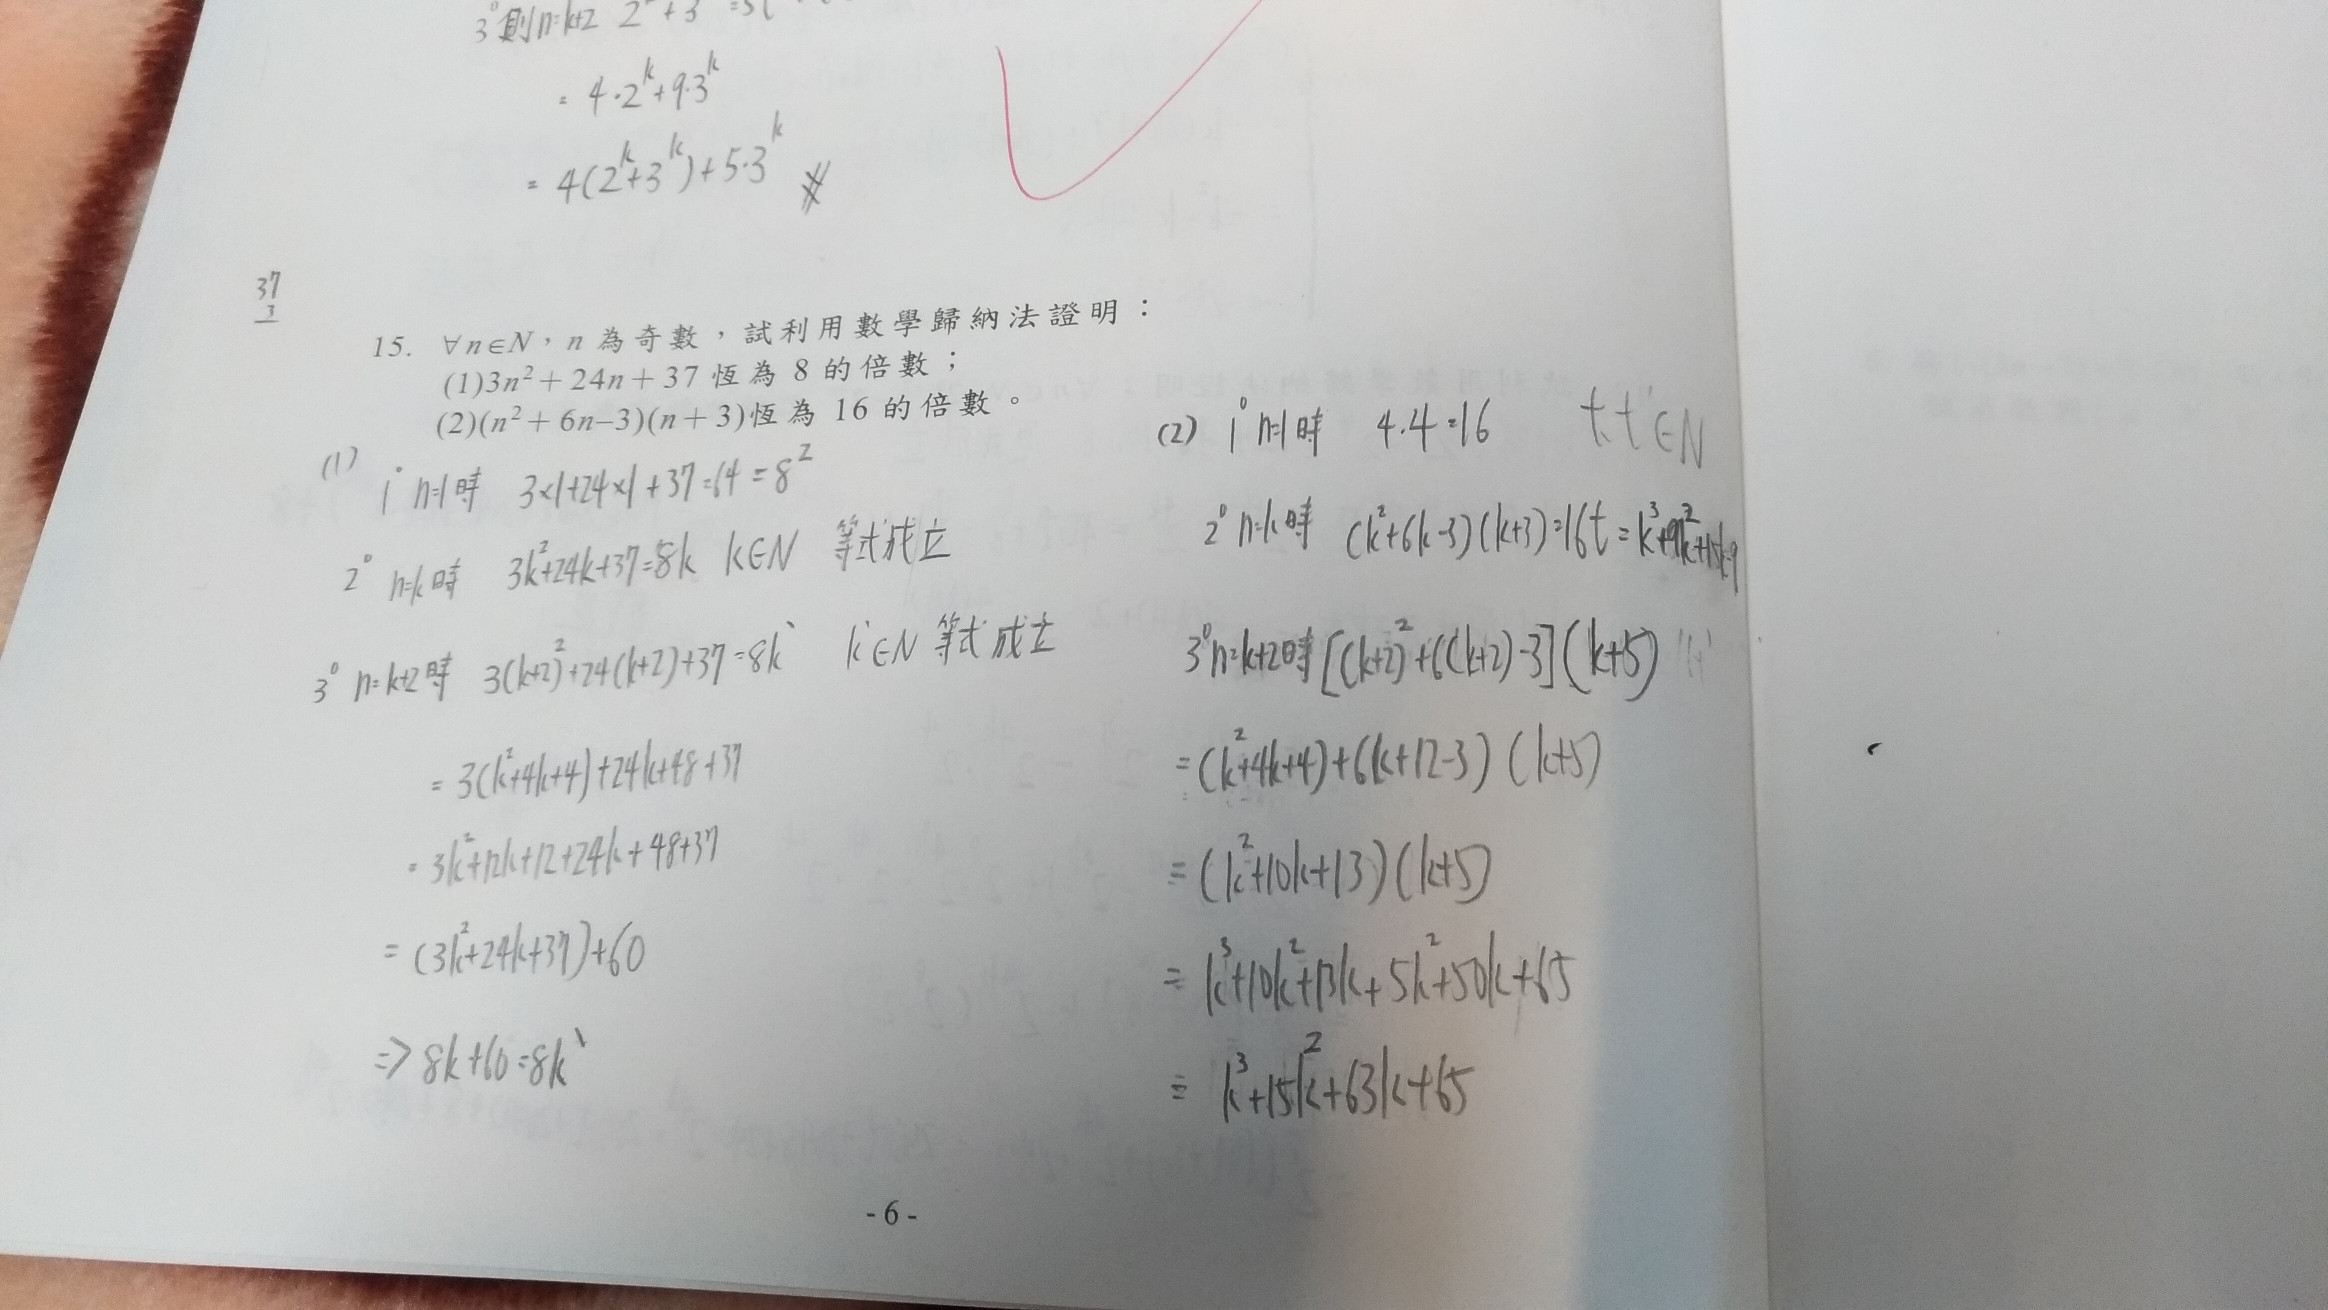 3° 則n=k+2 2 + 3 =5t
= 4·2^k+9·3^k
= 4(2^k+3^k)+5·3^k #
37
3
15. ∀n∈N，n 為奇數，試利用數學歸納法證明：
(1)3n²+24n+37 恆為 8 的倍數；
(2)(n²+6n–3)(n+3)恆為 16 的倍數。
(1)
1° n=1時 3×1+24×1+37=64=8²
2° n=k時 3k²+24k+37=8k k∈N 等式成立
3° n=k+2時 3(k+2)²+24(k+2)+37=8k' k'∈N 等式成立
= 3(k²+4k+4)+24k+48+37
= 3k²+12k+12+24k+48+37
= (3k²+24k+37)+60
=> 8k+60=8k'
(2) 1° n=1時 4·4=16 t.t'∈N
2° n=k時 (k²+6k-3)(k+3)=16t=k³+9k²+15k-9
3° n=k+2時 [(k+2)²+6(k+2)-3](k+5)
=(k²+4k+4)+6k+12-3)(k+5)
=(k²+10k+13)(k+5)
= k³+10k²+13k+5k²+50k+65
= k³+15k²+63k+65
- 6 -